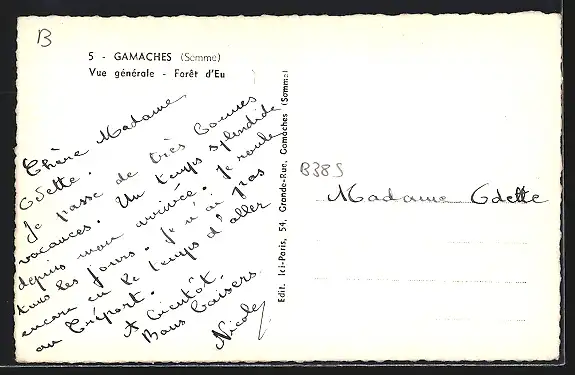 B
5 - GAMACHES (Somme)
Vue générale - Forêt d'Eu
Chère Madame
Odette.
Je passe de très bonnes
vacances. Un temps splendide
depuis mon arrivée. Je roule
tous les jours. Je n'ai pas
encore eu le temps d'aller
au Tréport.
A bientôt.
Bons baisers
Nicole
Edit. Ici-Paris, 54, Grande-Rue, Gamaches (Somme)
B385
Madame Odette